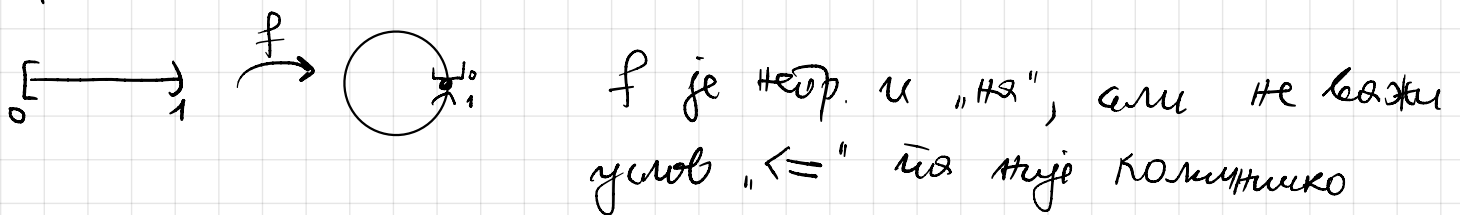 f
[ ) 0 1
0 1
f је непр. и „на“, али не важи
услов „<=“ па није количничко